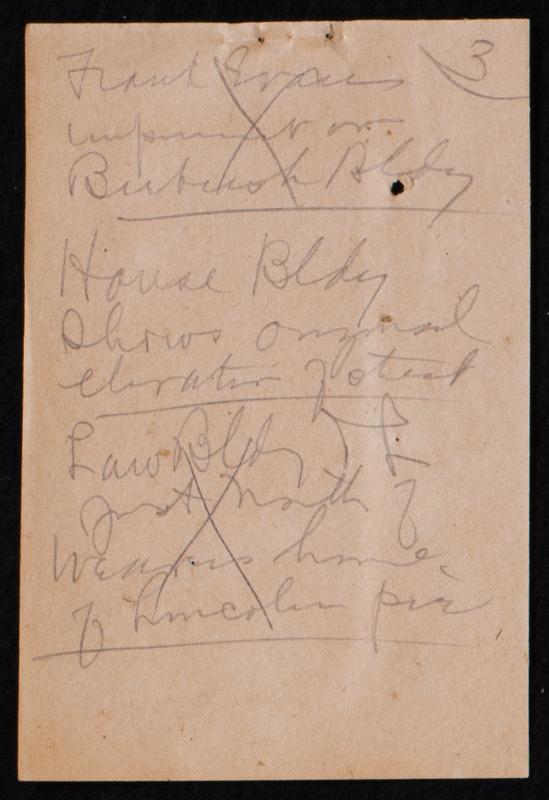 3
Frank Evans
imprint on
Bldg
House Bldg
shows original
elevation of street
Law Bldg
just North of
Weavers home.
of Lincoln pic